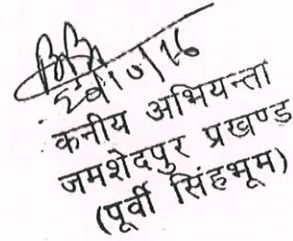 कनीय अभियन्ता
जमशेदपुर प्रखण्ड
(पूर्वी सिंहभूम)